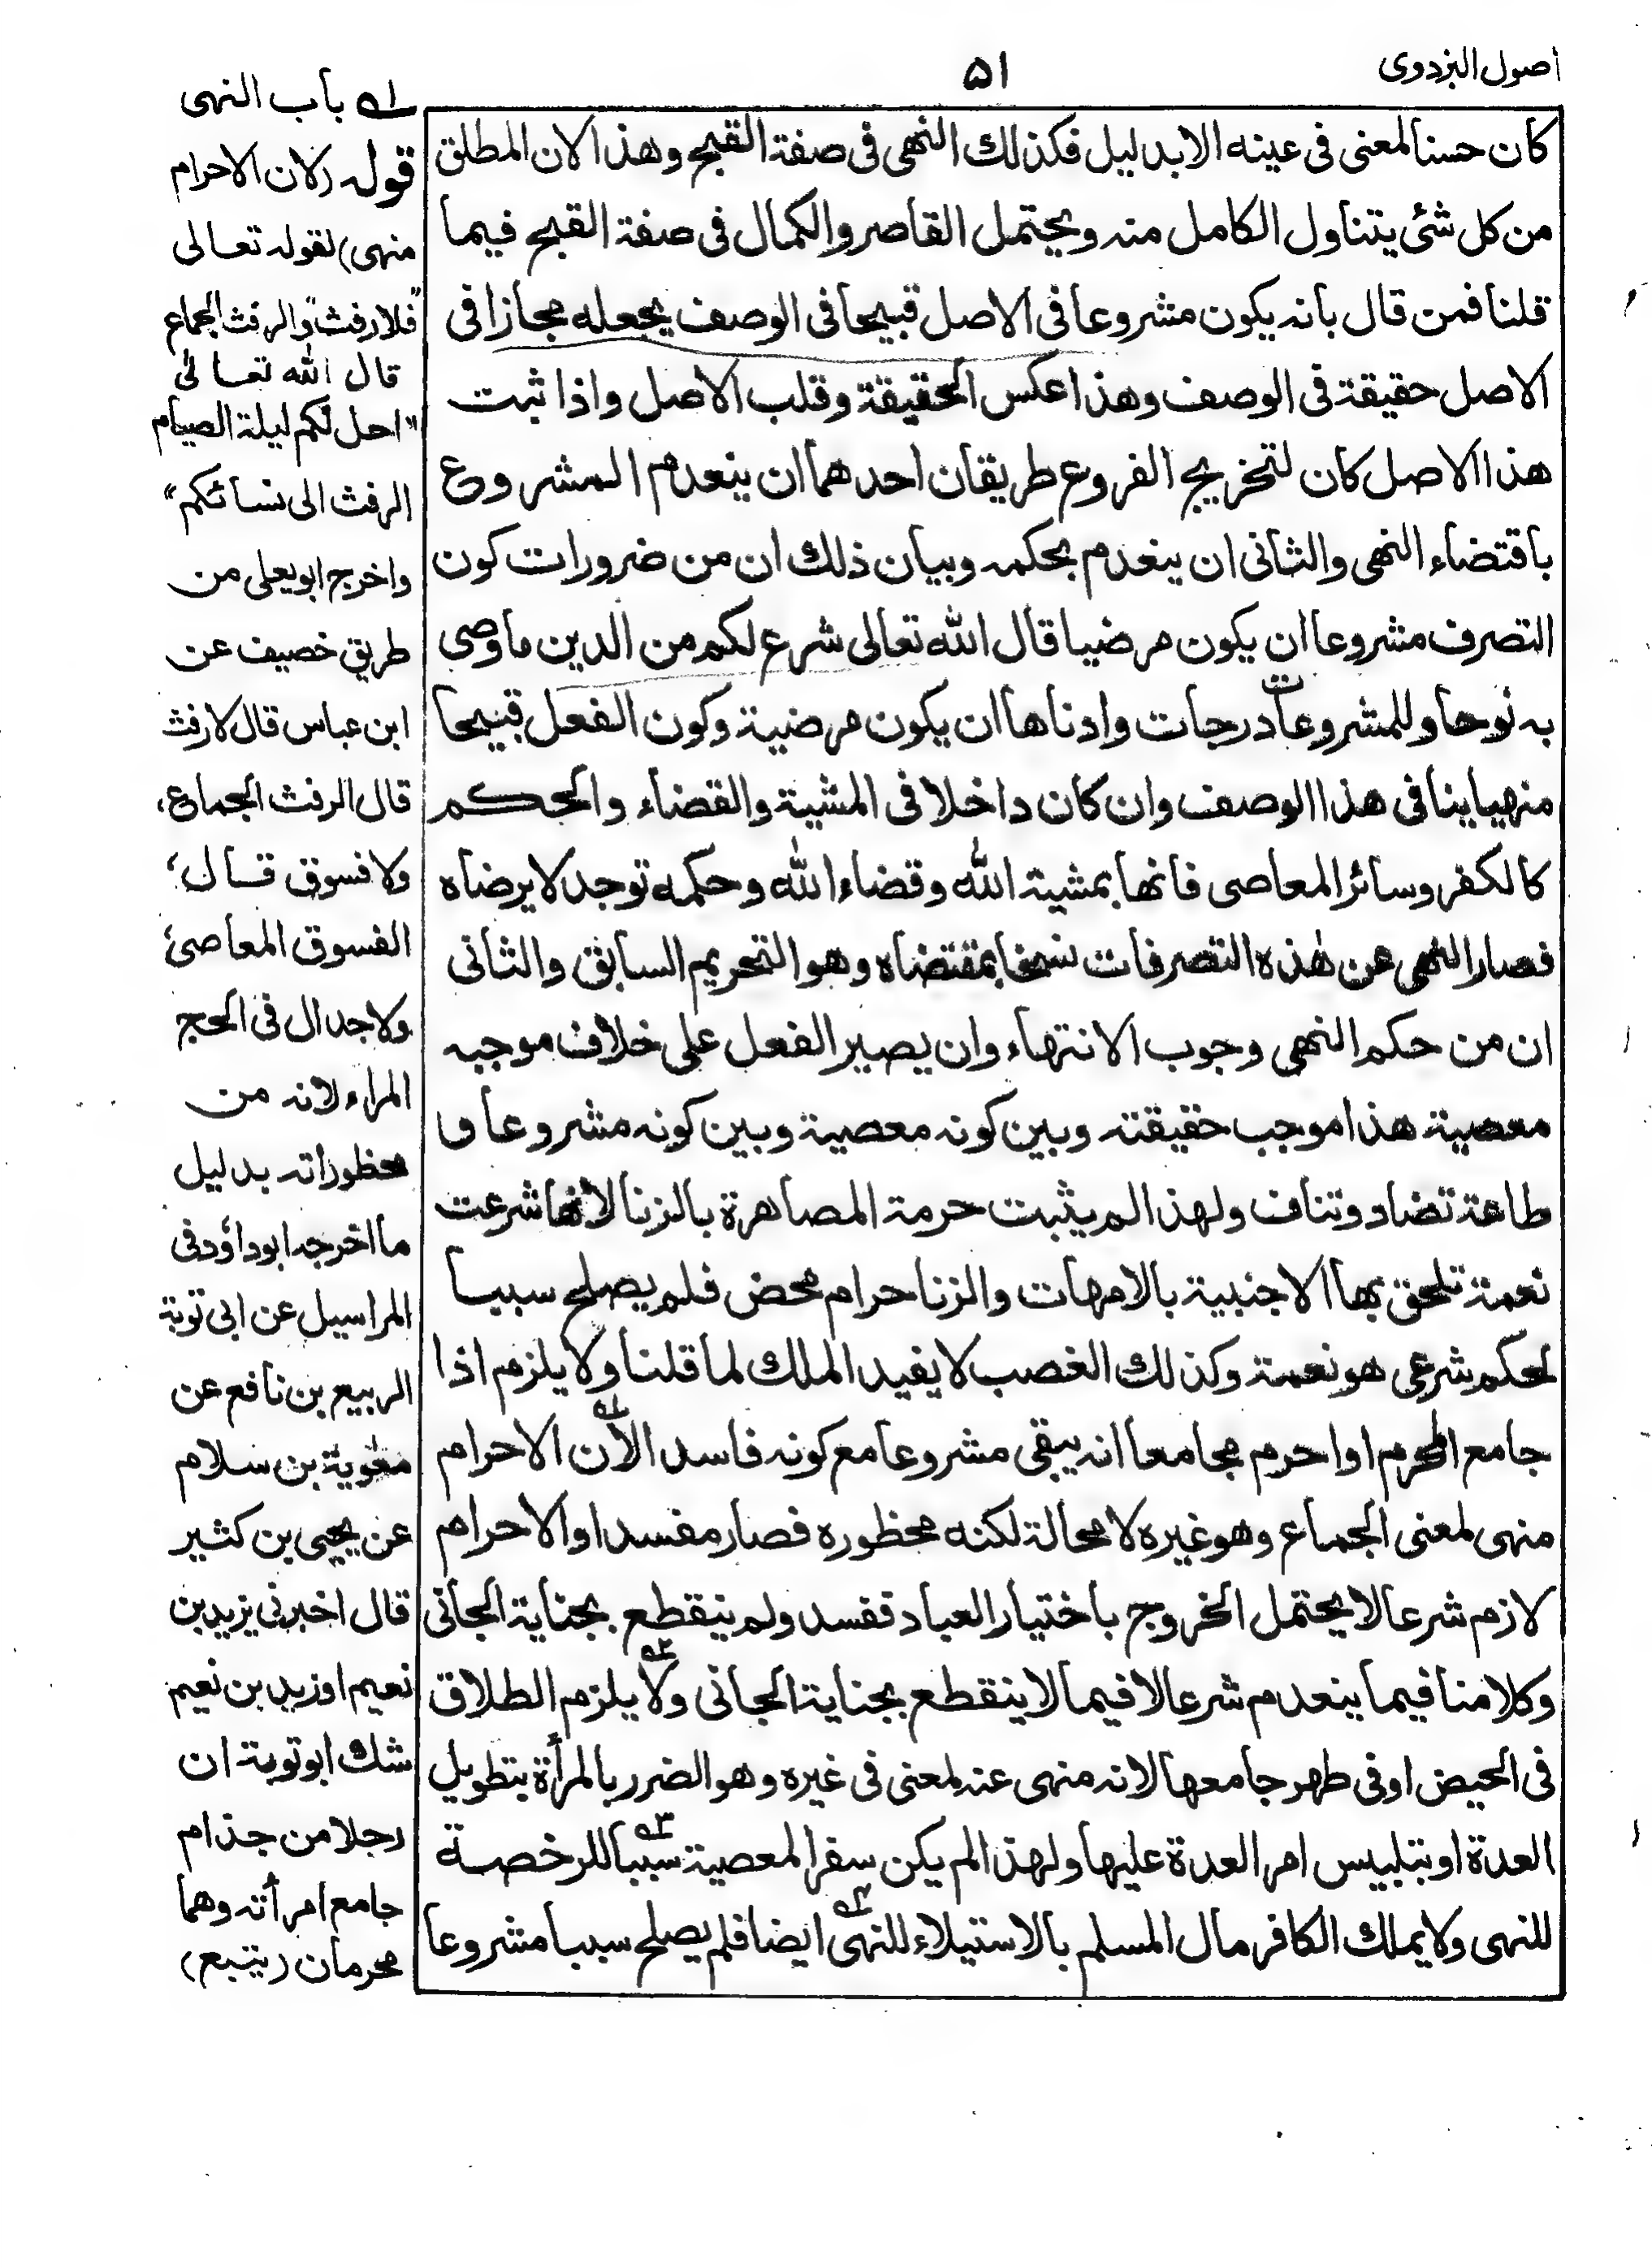 اصول البزدوی
۵۱
کان حسنا لمعنی فی عینه الا بدلیل فکذلك النهی فی صفة القبح وهذا لان المطلق
من کل شئ یتناول الکامل منه ویحتمل القاصر والکمال فی صفة القبح فیما
قلنا فمن قال بانه یکون مشروعا فی الاصل قبیحا فی الوصف یجعله مجازا فی
الاصل حقیقة فی الوصف وهذا عکس الحقیقة وقلب الاصل واذا ثبت
هذا الاصل کان لتخریج الفروع طریقان احدهما ان ینعدم المشروع
باقتضاء النهی والثانی ان ینعدم بحکمه وبیان ذلك ان من ضرورات کون
التصرف مشروعا ان یکون مرضیا قال الله تعالی شرع لکم من الدین ما وصی
به نوحا وللمشروعات درجات وادناها ان یکون مرضیة وکون الفعل قبیحا
منهیا ینافی هذا الوصف وان کان داخلا فی المشیة والقضاء والحکم
کالکفر وسائر المعاصی فانها بمشیة الله وقضاء الله وحکمه توجد لا یرضاه
فصار النهی عن هٰذه التصرفات نسخا بمقتضاه وهو التحریم السابق والثانی
ان من حکم النهی وجوب الانتهاء وان یصیر الفعل علی خلاف موجبه
معصیة هذا موجب حقیقته وبین کونه معصیة وبین کونه مشروعا و
طاعة تضاد وتناف ولهذا لم یثبت حرمة المصاهرة بالزنا لانها شرعت
نعمة تلحق بها الاجنبیة بالامهات والزنا حرام محض فلم یصلح سببا
لحکم شرعی هو نعمة وکذلك الغصب لا یفید الملك لما قلنا ولا یلزم اذا
جامع المحرم او احرم مجامعا انه یبقی مشروعا مع کونه فاسدا لان الاحرام
منهی لمعنی الجماع وهو غیره لا محالة لکنه محظوره فصار مفسدا والاحرام
لازم شرعا لا یحتمل الخروج باختیار العباد ففسد ولم ینقطع بجنایة الجانی
وکلامنا فیما ینعدم شرعا لا فیما لا ینقطع بجنایة الجانی ولا یلزم الطلاق
فی الحیض او فی طهر جامعها لانه منهی عنه لمعنی فی غیره وهو الضرر بالمرأة بتطویل
العدة او بتلبیس امر العدة علیها ولهذا لم یکن سفر المعصیة سببا للرخصة
للنهی ولا یملك الکافر مال المسلم بالاستیلاء للنهی ایضا فلم یصلح سببا مشروعا
له باب النهی
قوله (لان الاحرام
منهی) لقوله تعالی
"فلا رفث" والرفث الجماع
قال الله تعالیٰ
"احل لکم لیلة الصیام
الرفث الی نسائکم"
واخرج ابو یعلی من
طریق خصیف عن
ابن عباس قال لا رفث
قال الرفث الجماع،
ولا فسوق قال،
الفسوق المعاصی،
ولا جدال فی الحج
المراء لانه من
محظوراته بدلیل
ما اخرجه ابو داؤد فی
المراسیل عن ابی توبة
الربیع بن نافع عن
معٰویة بن سلام
عن یحیی بن کثیر
قال اخبرنی یزید بن
نعیم او زید بن نعیم
شك ابو توبة ان
رجلا من جذام
جامع امرأته وهما
محرمان (یتبع)